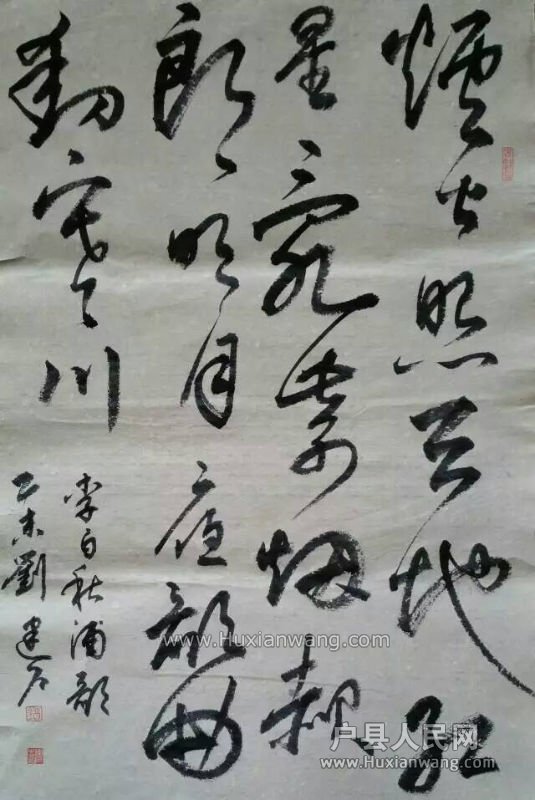 爐火照天地紅
星亂紫烟赧
郎明月夜歌曲
動寒川
李白秋浦歌
乙未劉建
www.Huxianwang.com
户县人民网
www.Huxianwang.com